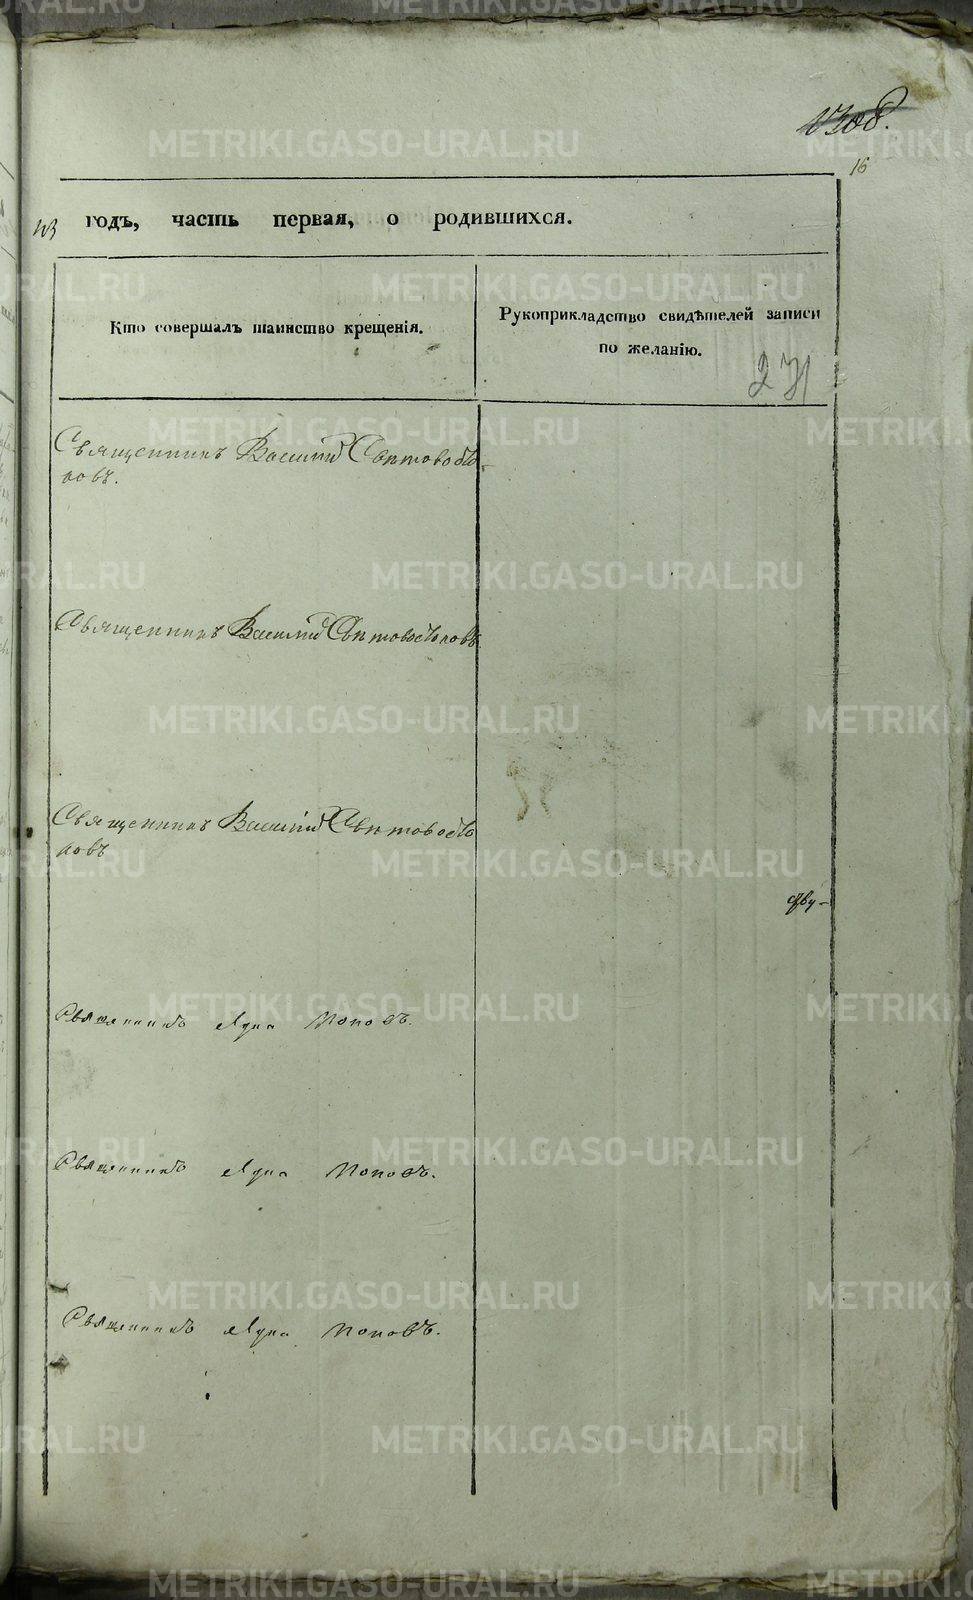 1308.
16
43 годъ, часть первая, о родившихся.
Кто совершалъ таинство крещенія.
Рукоприкладство свидѣтелей записи
по желанію.
271
Священникъ Василій
Священникъ Василій
Священникъ Василій
дву-
Священникъ Поповъ.
Священникъ Поповъ.
Священникъ Поповъ.
METRIKI.GASO-URAL.RU